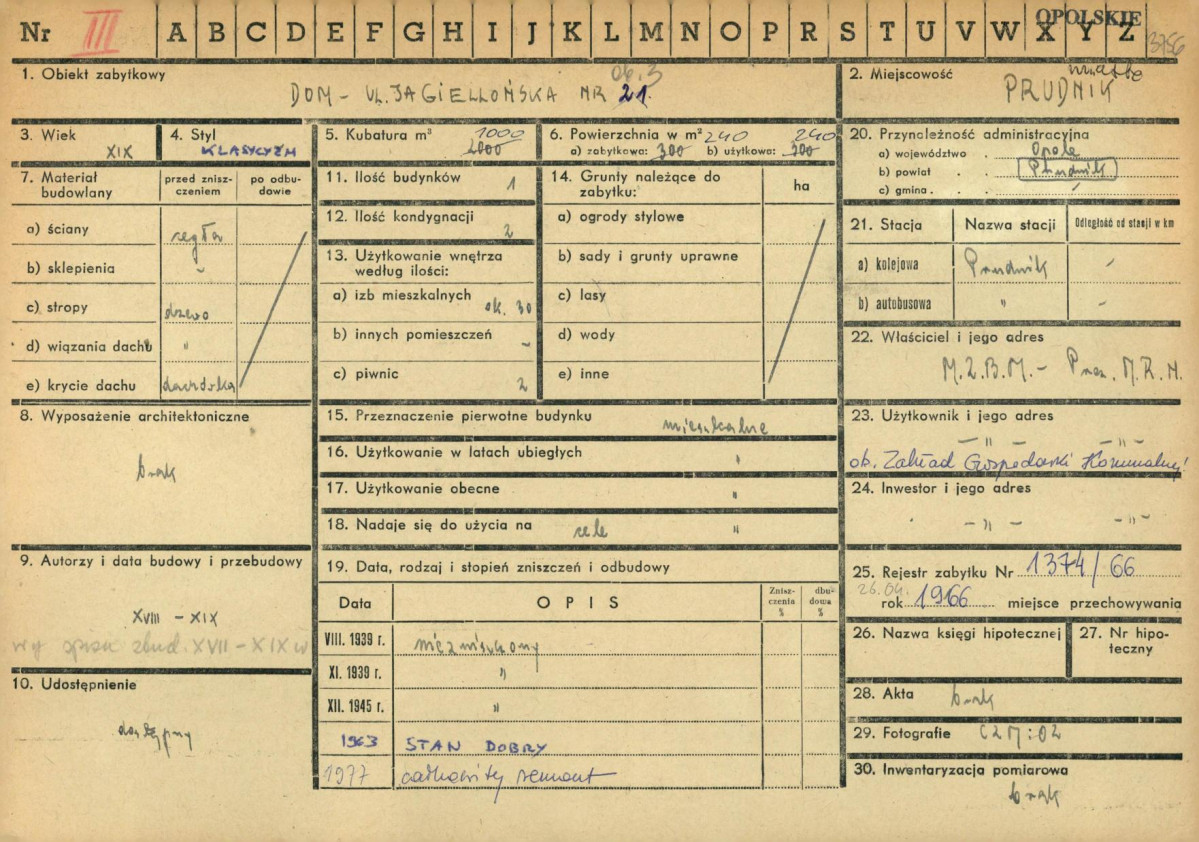 Nr III A B C D E F G H I J K L M N O P R S T U V W X Y Z
OPOLSKIE
3756
1. Obiekt zabytkowy
ob. 3
DOM - UL. JAGIELLOŃSKA NR 21.
2. Miejscowość
miasto
PRUDNIK
3. Wiek
XIX
4. Styl
KLASYCYZM
5. Kubatura m³ 1000
2000
6. Powierzchnia w m² 240 240
a) zabytkowa: 300 b) użytkowa: 300
20. Przynależność administracyjna
a) województwo Opole
b) powiat Prudnik
c) gmina
7. Materiał budowlany
przed zniszczeniem
po odbudowie
a) ściany cegła
b) sklepienia -
c) stropy drewo
d) wiązania dachu "
e) krycie dachu dachówka
11. Ilość budynków 1
12. Ilość kondygnacji 2
13. Użytkowanie wnętrza według ilości:
a) izb mieszkalnych ok. 30
b) innych pomieszczeń -
c) piwnic 2
14. Grunty należące do zabytku:
ha
a) ogrody stylowe
b) sady i grunty uprawne
c) lasy
d) wody
e) inne
21. Stacja
Nazwa stacji
Odległość od stacji w km
a) kolejowa Prudnik -
b) autobusowa " -
22. Właściciel i jego adres
M.Z.B.M. - Prez. M.R.N.
8. Wyposażenie architektoniczne
brak
15. Przeznaczenie pierwotne budynku
mieszkalne
16. Użytkowanie w latach ubiegłych "
17. Użytkowanie obecne "
18. Nadaje się do użycia na cele "
23. Użytkownik i jego adres
- " - - " -
ob. Zakład Gospodarki Komunalnej
24. Inwestor i jego adres
- " - - " -
9. Autorzy i data budowy i przebudowy
XVIII - XIX
wg spisu zbud. XVII - XIX w
19. Data, rodzaj i stopień zniszczeń i odbudowy
Data
OPIS
Zniszczenia %
dbudowa %
VIII. 1939 r. niezniszczony
XI. 1939 r. "
XII. 1945 r. "
1963 STAN DOBRY
1977 całkowity remont
25. Rejestr zabytku Nr 1374/66
26.04.
rok 1966 miejsce przechowywania
26. Nazwa księgi hipotecznej
27. Nr hipoteczny
10. Udostępnienie
dostępny
28. Akta brak
29. Fotografie
30. Inwentaryzacja pomiarowa
brak